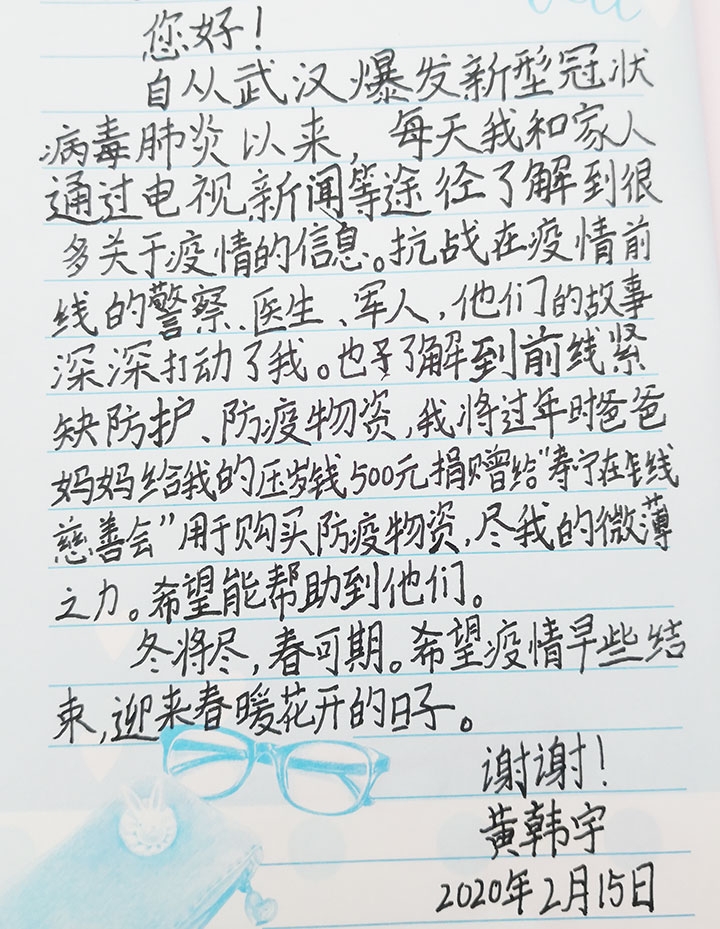 您好！
自从武汉爆发新型冠状
病毒肺炎以来，每天我和家人
通过电视新闻等途径了解到很
多关于疫情的信息。抗战在疫情前
线的警察、医生、军人，他们的故事
深深打动了我。也了解到前线紧
缺防护、防疫物资，我将过年时爸爸
妈妈给我的压岁钱500元捐赠给“寿宁在线
慈善会”用于购买防疫物资，尽我的微薄
之力。希望能帮助到他们。
冬将尽，春可期。希望疫情早些结
束，迎来春暖花开的日子。
谢谢！
黄韩宇
2020年2月15日